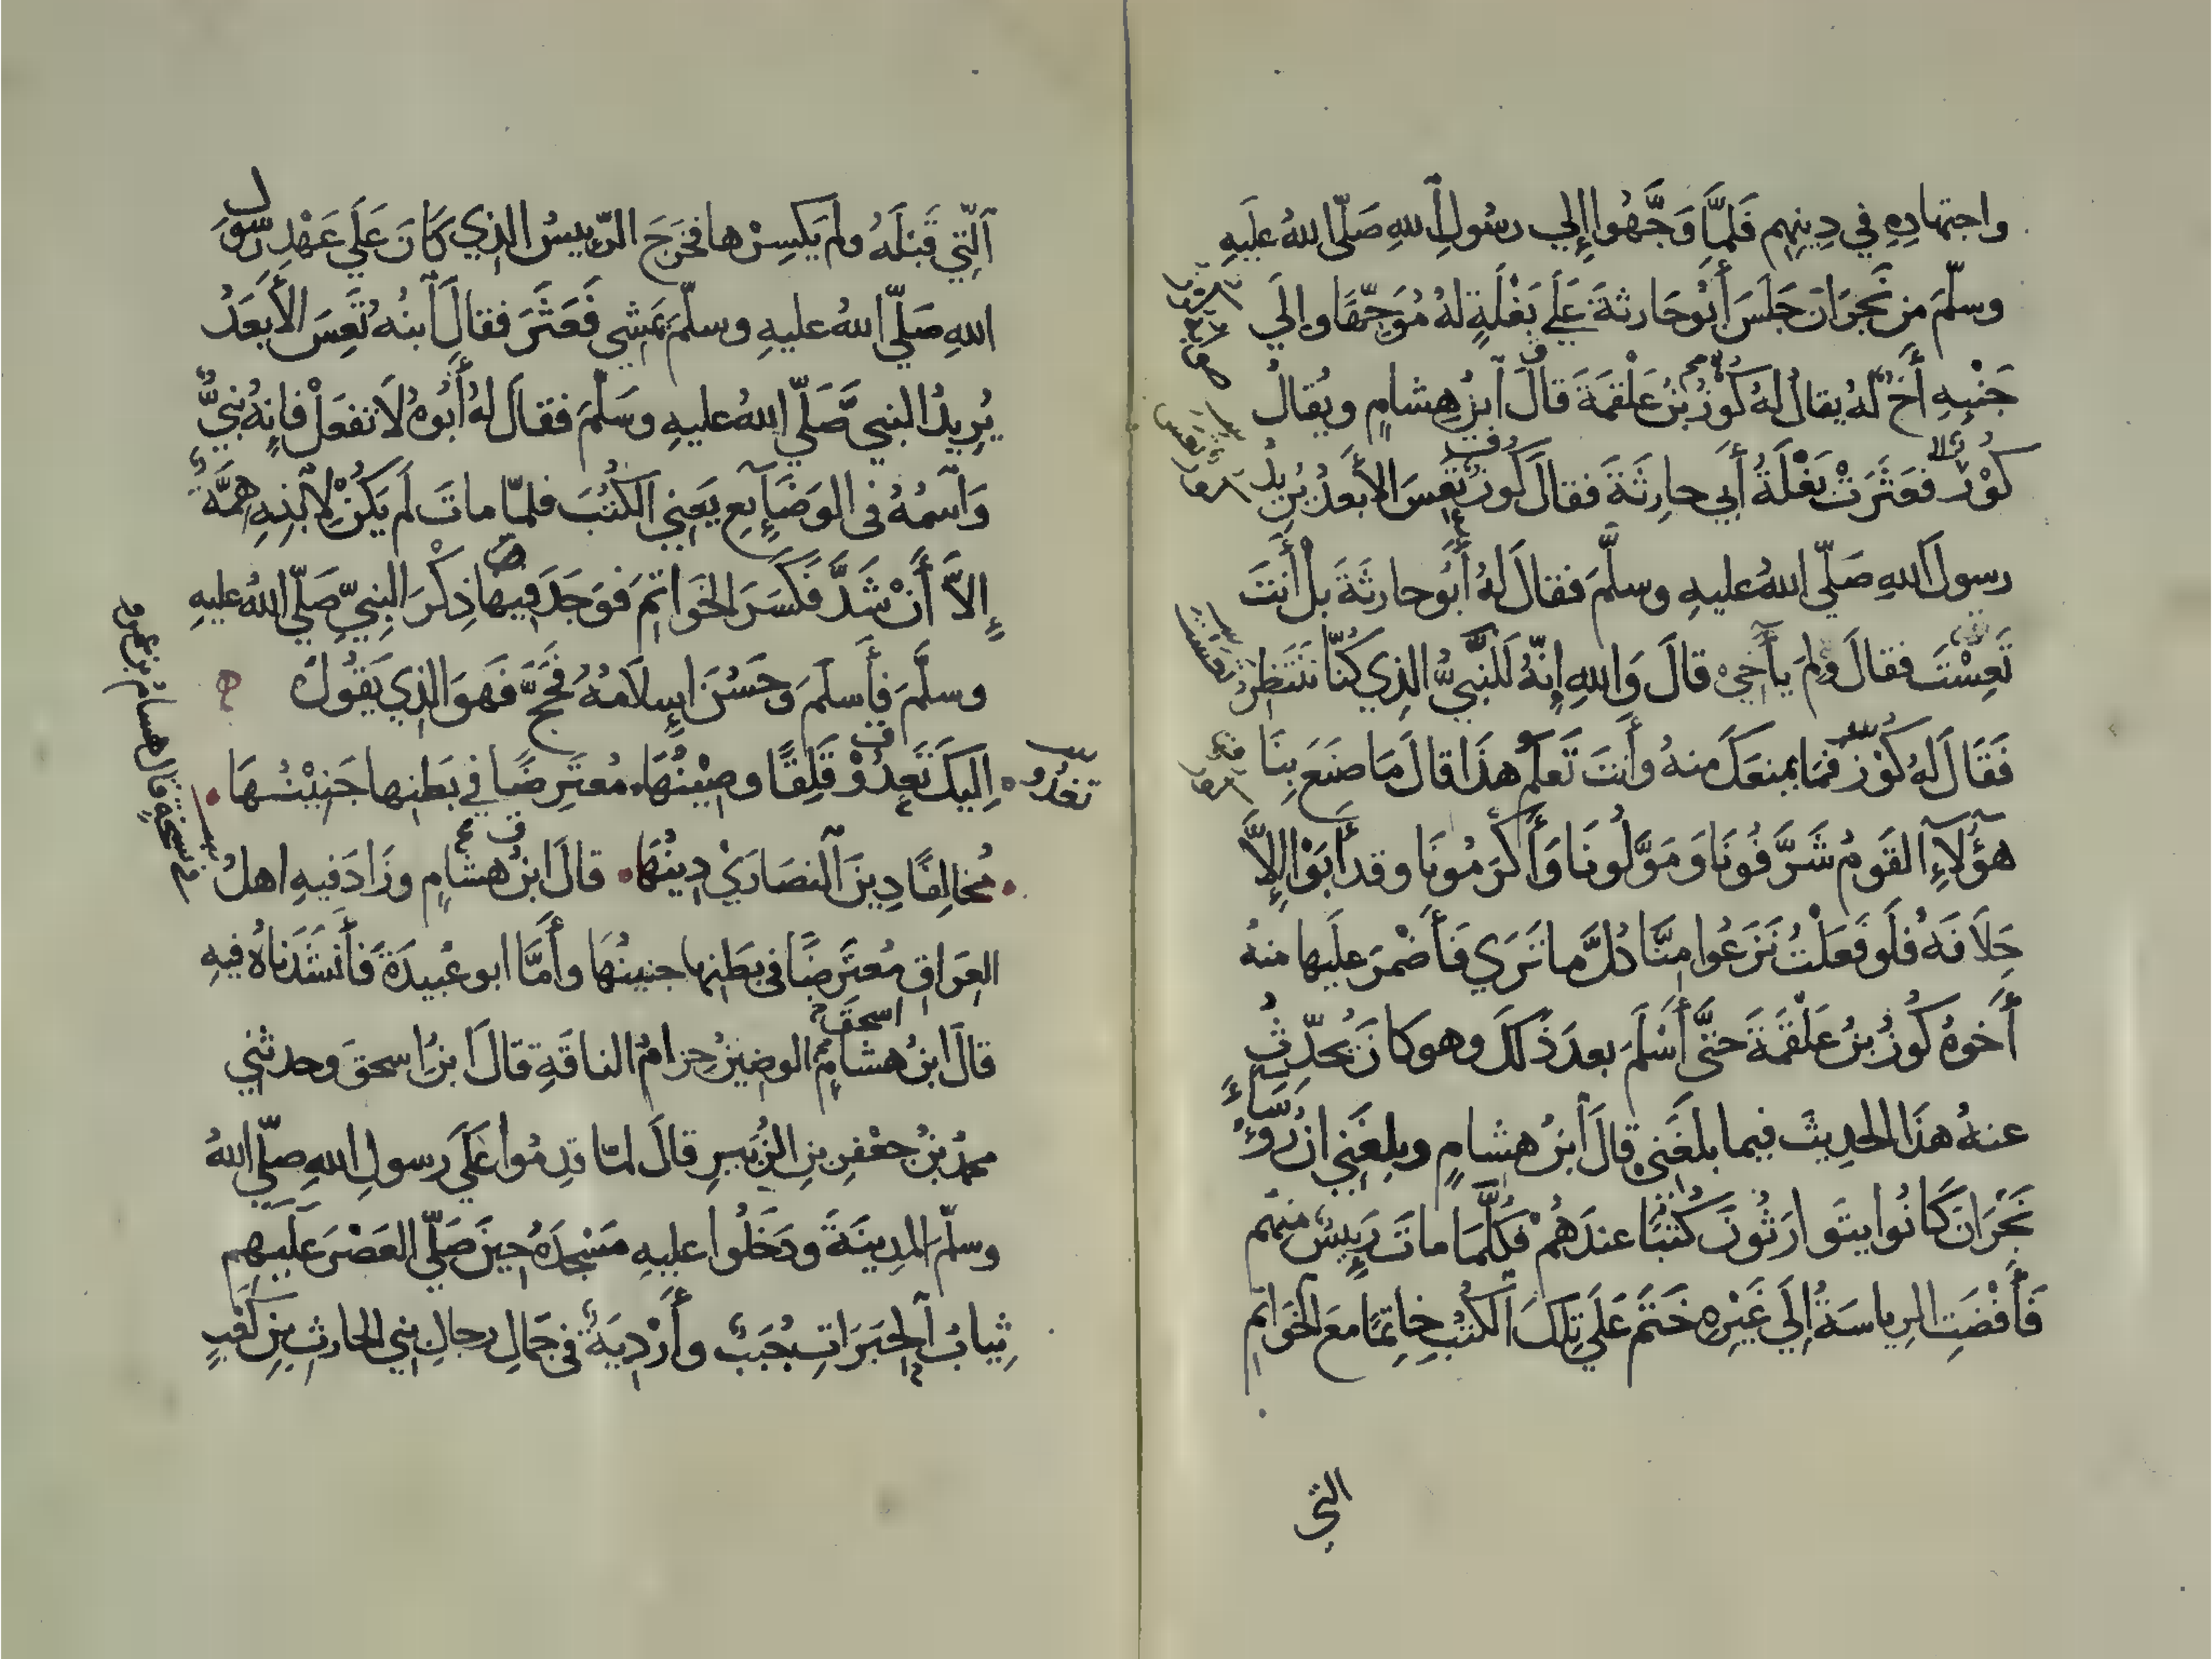 واجتهادِهِ في دِينِهِم فَلمَّا وَجَّهُوا إلي رسُولِ اللهِ صَلّى اللهُ عَلَيهِ
وسلّمَ مِن نَجرَانَ جَلَسَ أبُو حَارثةَ عَلَي بَغْلَةٍ لهُ مُوَجِّهًا وإلَي
جَنْبِهِ أخٌ لهُ يقالُ لهُ كُوْزُ بنُ عَلْقمَةَ قالَ ابنُ هِشامٍ ويُقالُ
كُوْزٌ فعَثَرَتْ بَغْلَةُ أَبي حارِثَةَ فقالَ كُوزٌ تَعِسَ الأَبعدُ يُرِيدُ
رسولَ اللهِ صَلّي اللهُ عليهِ وسلَّمَ فقالَ لهُ أبُو حارثَةَ بلْ أنتَ
تَعِسْتَ فقالَ ولِمَ يأخِي قالَ وَاللهِ إنّهُ لَلنَّبيُّ الذِي كُنّا نَنتَظِرُ
فَقَالَ لهُ كُوْزٌ فمَا يمنعَكَ منهُ وأَنتَ تَعلَمُ هذَا قالَ مَا صَنَعَ بِنَا
هؤُلآءِ القَومُ شَرَّفُونَا وَمَوَّلُونَا وَأَكرَمُونَا وقد أبَوْا إلاَّ
خِلاَفَهُ فلَو فَعَلْتُ نَزَعُوا مِنَّا كُلَّ ما تَرَي فَأَضْمَرَ علَيها منهُ
أَخوهُ كُوزُ بنُ عَلْقمَةَ حتَّى أَسْلَمَ بعدَ ذَلكَ وهو كانَ يُحدِّثُ
عنهُ هذَا الحَدِيثَ فيما بلغَنِي قالَ ابنُ هشامٍ وبلغَنِي ان رُؤَسَاءَ
نَجْرَانَ كَانُوا يتَوارَثُونَ كُتُبًا عندَهُمْ فكُلَّمَا ماتَ رَئِيسٌ منهُم
فَأَفْضَتِ الرِياسَةُ إلَي غَيْرِهِ خَتَمَ عَلَي تِلكَ الكُتُبِ خاتِمًا معَ الخَوَاتِمِ
التي
الَّتِي قَبْلَهُ ولم يَكسِرْها فخرَجَ الرّئِيسُ الذِي كَانَ عَلَي عَهْدِ رَسُولِ
اللهِ صَلّي اللهُ عليهِ وسلّمَ يَمشي فَعَثَرَ فقالَ ابنُهُ تَعِسَ الأَبعَدُ
يُرِيدُ النبيَّ صَلّي اللهُ عليهِ وسَلّمَ فقالَ لهُ أَبُوهُ لَا تفعَلْ فإنهُ نبيٌّ
وَاسمُهُ فى الوَضَايِعِ يَعني الكُتُبَ فلمّا ماتَ لَم يَكُنْ لِابْنِهِ هِمَّةٌ
إلاَّ أَنْ شَدَّ فَكَسَرَ الخَواتِمَ فوَجَدَ فيها ذِكْرَ النبِيِّ صَلّي اللهُ عليهِ
وسلَّمَ فأَسلَمَ وحَسُنَ إسلاَمُهُ فحَجَّ فَهوَ الذِي يَقُولُ
إليكَ تَعدُوْ قَلِقًا وضِيْنُهَا مُعتَرِضًا في بَطنِها جَنِيْنُهَا
تغدُو
مُخالِفًا دِينَ النصَارَيْ دِينُهَا قالَ ابنُ هشامٍ وزَادَ فيهِ اهلُ
العِرَاقِ مُعتَرِضًا في بطَنِها جنينُهَا وأَمَّا ابو عُبيدَةَ فأنشَدَناهُ فيهِ
اسحَقَ
قالَ ابنُ هشامٍ الوضِينُ حِزامُ الناقَةِ قالَ ابنُ اسحقَ وحدثني
محمدُ بنُ جعْفرِ بنِ الزُبَيرِ قالَ لمّا قدِمُوا عَلَي رسولِ اللهِ صلّي اللهُ
وسلّمَ المدِينَةَ ودَخَلُوا عليهِ مَسْجدَهُ حِينَ صَلّي العَصْرَ عَلَيهِم
ثِيابُ الحِبَرَاتِ جُبَبٌ وأَرْدِيَةٌ في جَمالِ رجالِ بنِي الحارثِ بنِ كَعبٍ
في نسخةٍ قال هشام بن عروه